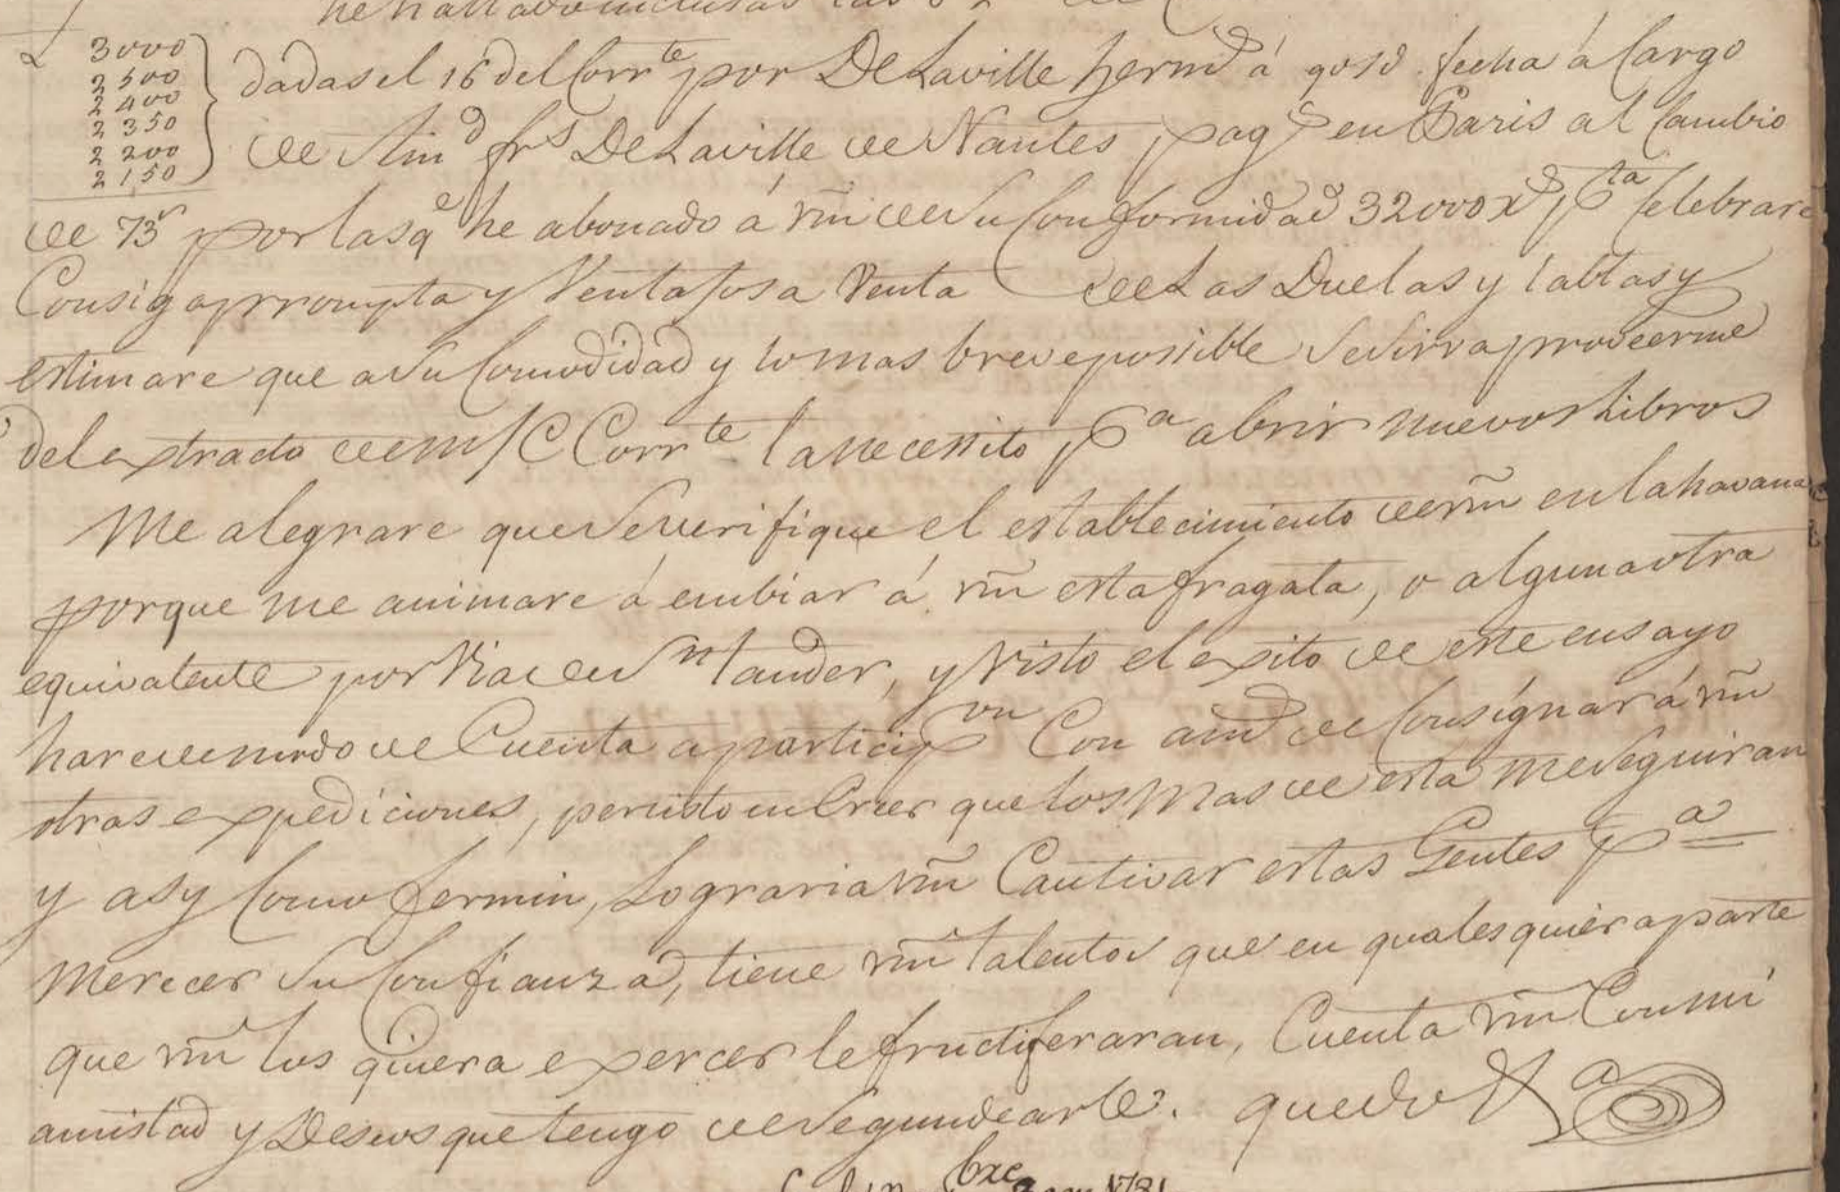 he hallado inclusas las 6 L
3000
2500
2400
2350
2200
2150
dadas el 16 del Corrte por De Laville herms á 90 sd fecha á Cargo
de Aimd frs De Laville de Nantes, pags en Paris al Cambio
de 73 por las qe he abonado á vm de su Conformidad 32000 Celebrare
Consiga prrompta y Ventajosa Venta de Las Duelas y tablas y
estimare que a su Comodidad y lo mas breve possible se sirva proveerme
del extracto de m/C Corrte la necessito pa abrir nuevos Libros
Me alegrare que se verifique el establecimiento de vm en la havana
porque me animare á embiar á vm esta fragata, o alguna otra
equivalente por Via de Sntander, y Visto el exito de este ensayo
hare de modo de Cuenta a particip.on Con aimd de Consignar á vm
otras expediciones, persisto en Creer que los Mas de esta me seguiran
y asy Como fermin, Lograria vm Cautivar estas Gentes pa
merecer su Confianza, tiene vm talentos que en quales quiera parte
que vm los quiera exercer le fructiferaran, Cuenta vm Con mi
amistad y Deseos que tengo de segundearle. quedo Va
bre 1781